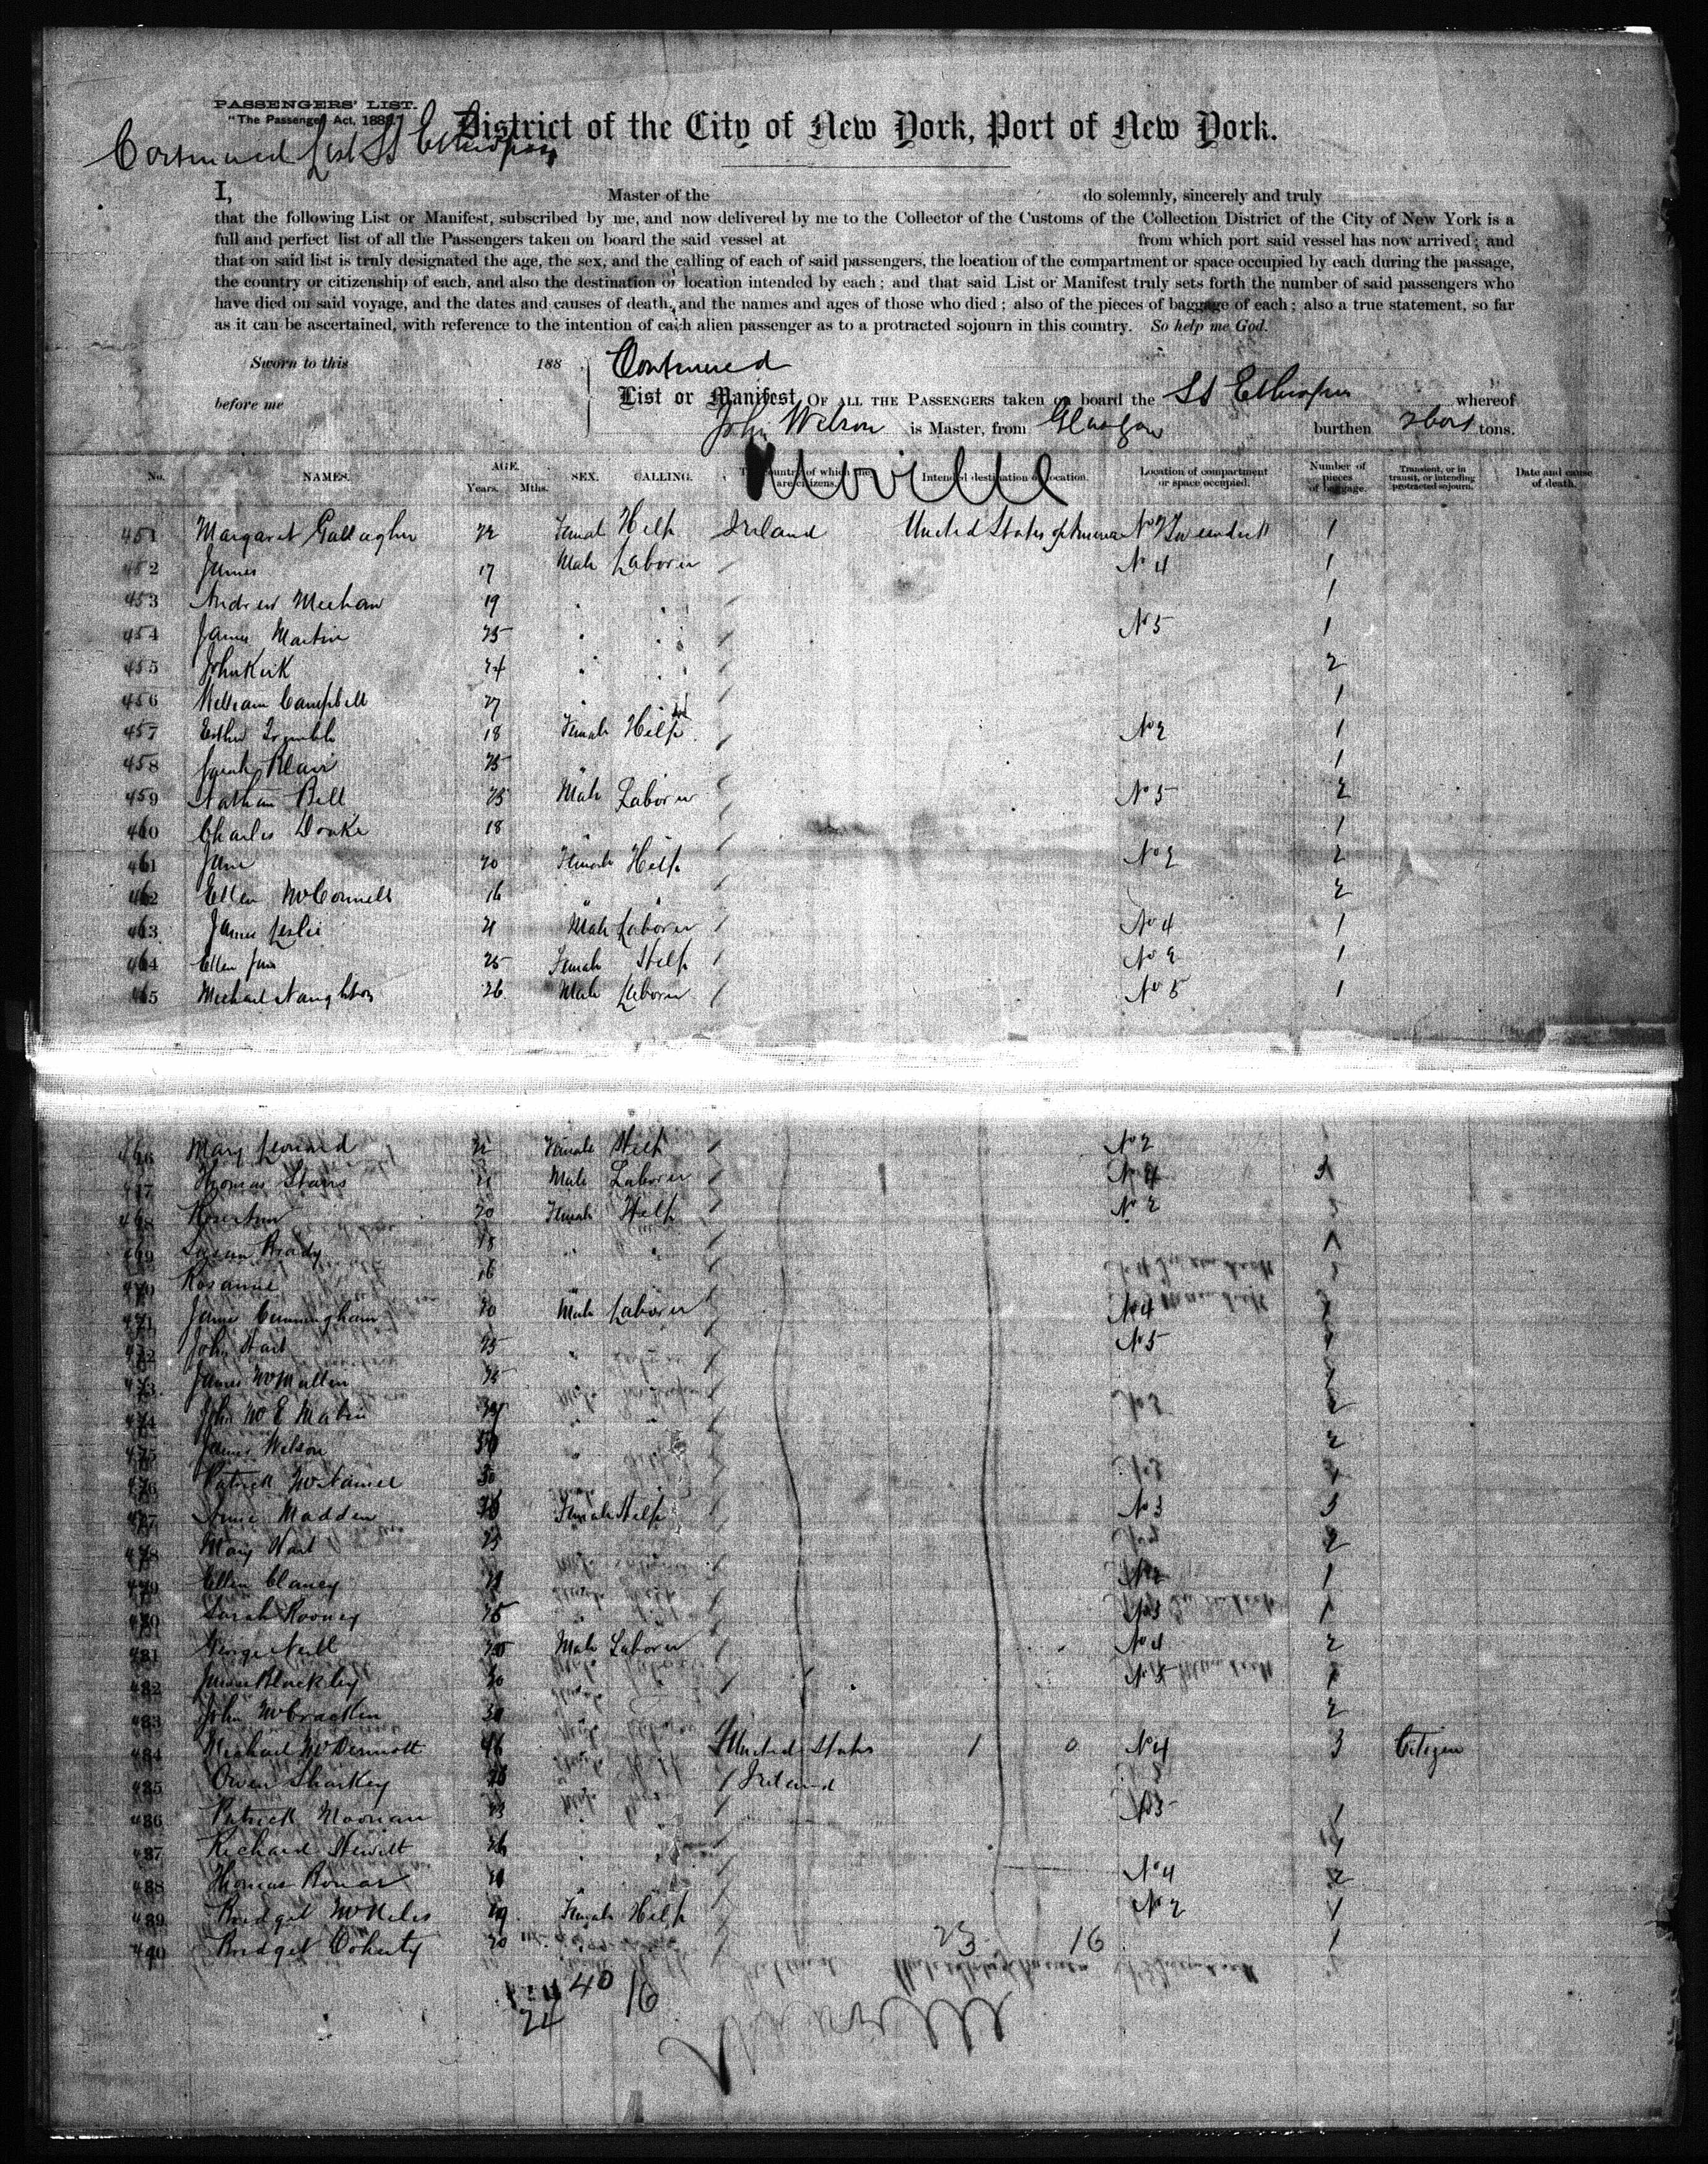 PASSENGERS' LIST.
"The Passenger Act, 1882."
District of the City of New York, Port of New York.
Continued List SS Ethiopia
I, Master of the do solemnly, sincerely and truly
that the following List or Manifest, subscribed by me, and now delivered by me to the Collector of the Customs of the Collection District of the City of New York is a
full and perfect list of all the Passengers taken on board the said vessel at from which port said vessel has now arrived; and
that on said list is truly designated the age, the sex, and the calling of each of said passengers, the location of the compartment or space occupied by each during the passage,
the country or citizenship of each, and also the destination or location intended by each; and that said List or Manifest truly sets forth the number of said passengers who
have died on said voyage, and the dates and causes of death, and the names and ages of those who died; also of the pieces of baggage of each; also a true statement, so far
as it can be ascertained, with reference to the intention of each alien passenger as to a protracted sojourn in this country. So help me God.
Sworn to this 188 Continued
List or Manifest OF ALL THE PASSENGERS taken on board the SS Ethiopia whereof
before me
John Wilson is Master, from Glasgow burthen tons.
Moville
No. NAMES. AGE. Years. Mths. SEX. CALLING. The country of which they are citizens. Intended destination or location. Location of compartment or space occupied. Number of pieces of baggage. Transient, or in transit, or intending protracted sojourn. Date and cause of death.
451 Margaret Gallagher 22 Female Help Ireland United States of America No 2 Tweendeck 1
452 James 17 Male Laborer No 4 1
453 Andrew Meehan 19 " " 1
454 James Martin 25 " " No 5 1
455 John Kirk 24 " " 2
456 William Campbell 27 " 1
457 Esther Trimble 18 Female Help No 2 1
458 Sarah Blair 25 " 1
459 Nathan Bell 25 Male Laborer No 5 2
460 Charles 18 1
461 Jane 20 Female Help No 2 2
462 Ellen McConnell 16 " " 2
463 James Leslie 21 Male Laborer No 4 1
464 Ellen Jane 25 Female Help No 2 1
465 Michael Naughton 26 Male Laborer No 5 1
466 Mary Leonard 22 Female Help No 2
467 Thomas Stairs 21 Male Laborer No 4
468 20 Female Help No 2
469 Susan Brady 18 " "
470 Rosanna 16
471 James Cunningham 20 Male Laborer No 4
472 John Hart 25 " No 5
473 James McMullin 25
474 John 2
475 James Wilson 50 " 2
476 Patrick McNamee 30
477 Anne Madden Female Help No 3 3
478 Mary Hart 25 2
479 Ellen Clancy 1
480 Sarah Rooney 25 1
481 George Neill Male Laborer No 4 2
482 James Blackley 30 No 5 1
483 John McCracken 30 2
484 Michael McDermott 46 United States 1 0 No 4 3 Citizen
485 Owen Sharkey Ireland
486 Patrick Noonan 23 No 5 1
487 Richard Hewitt 26
488 Thomas No 4 2
489 Bridget Female Help No 2 1
490 Bridget Doherty 20 1
23 16
40 16
24
Moville